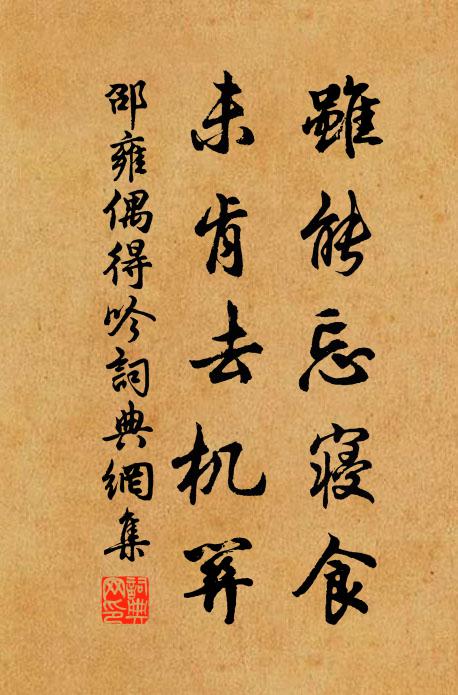 雖能忘寝食
未肯去机関
邵雍偶得吟詞典網集
詞典網印